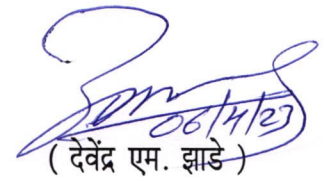 06/4/23
( देवेंद्र एम. झाडे )